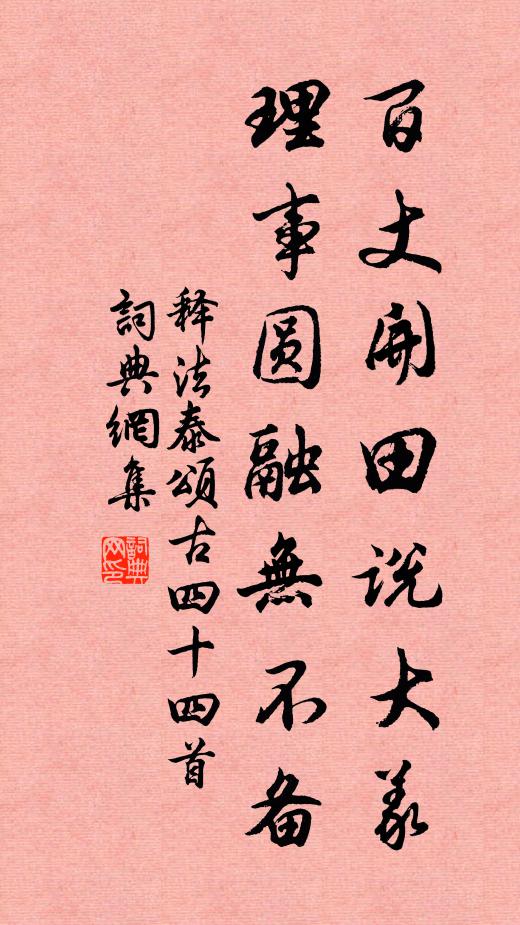 百丈開田说大义
理事圆融無不备
释法泰頌古四十四首
詞典網集
詞典
网印